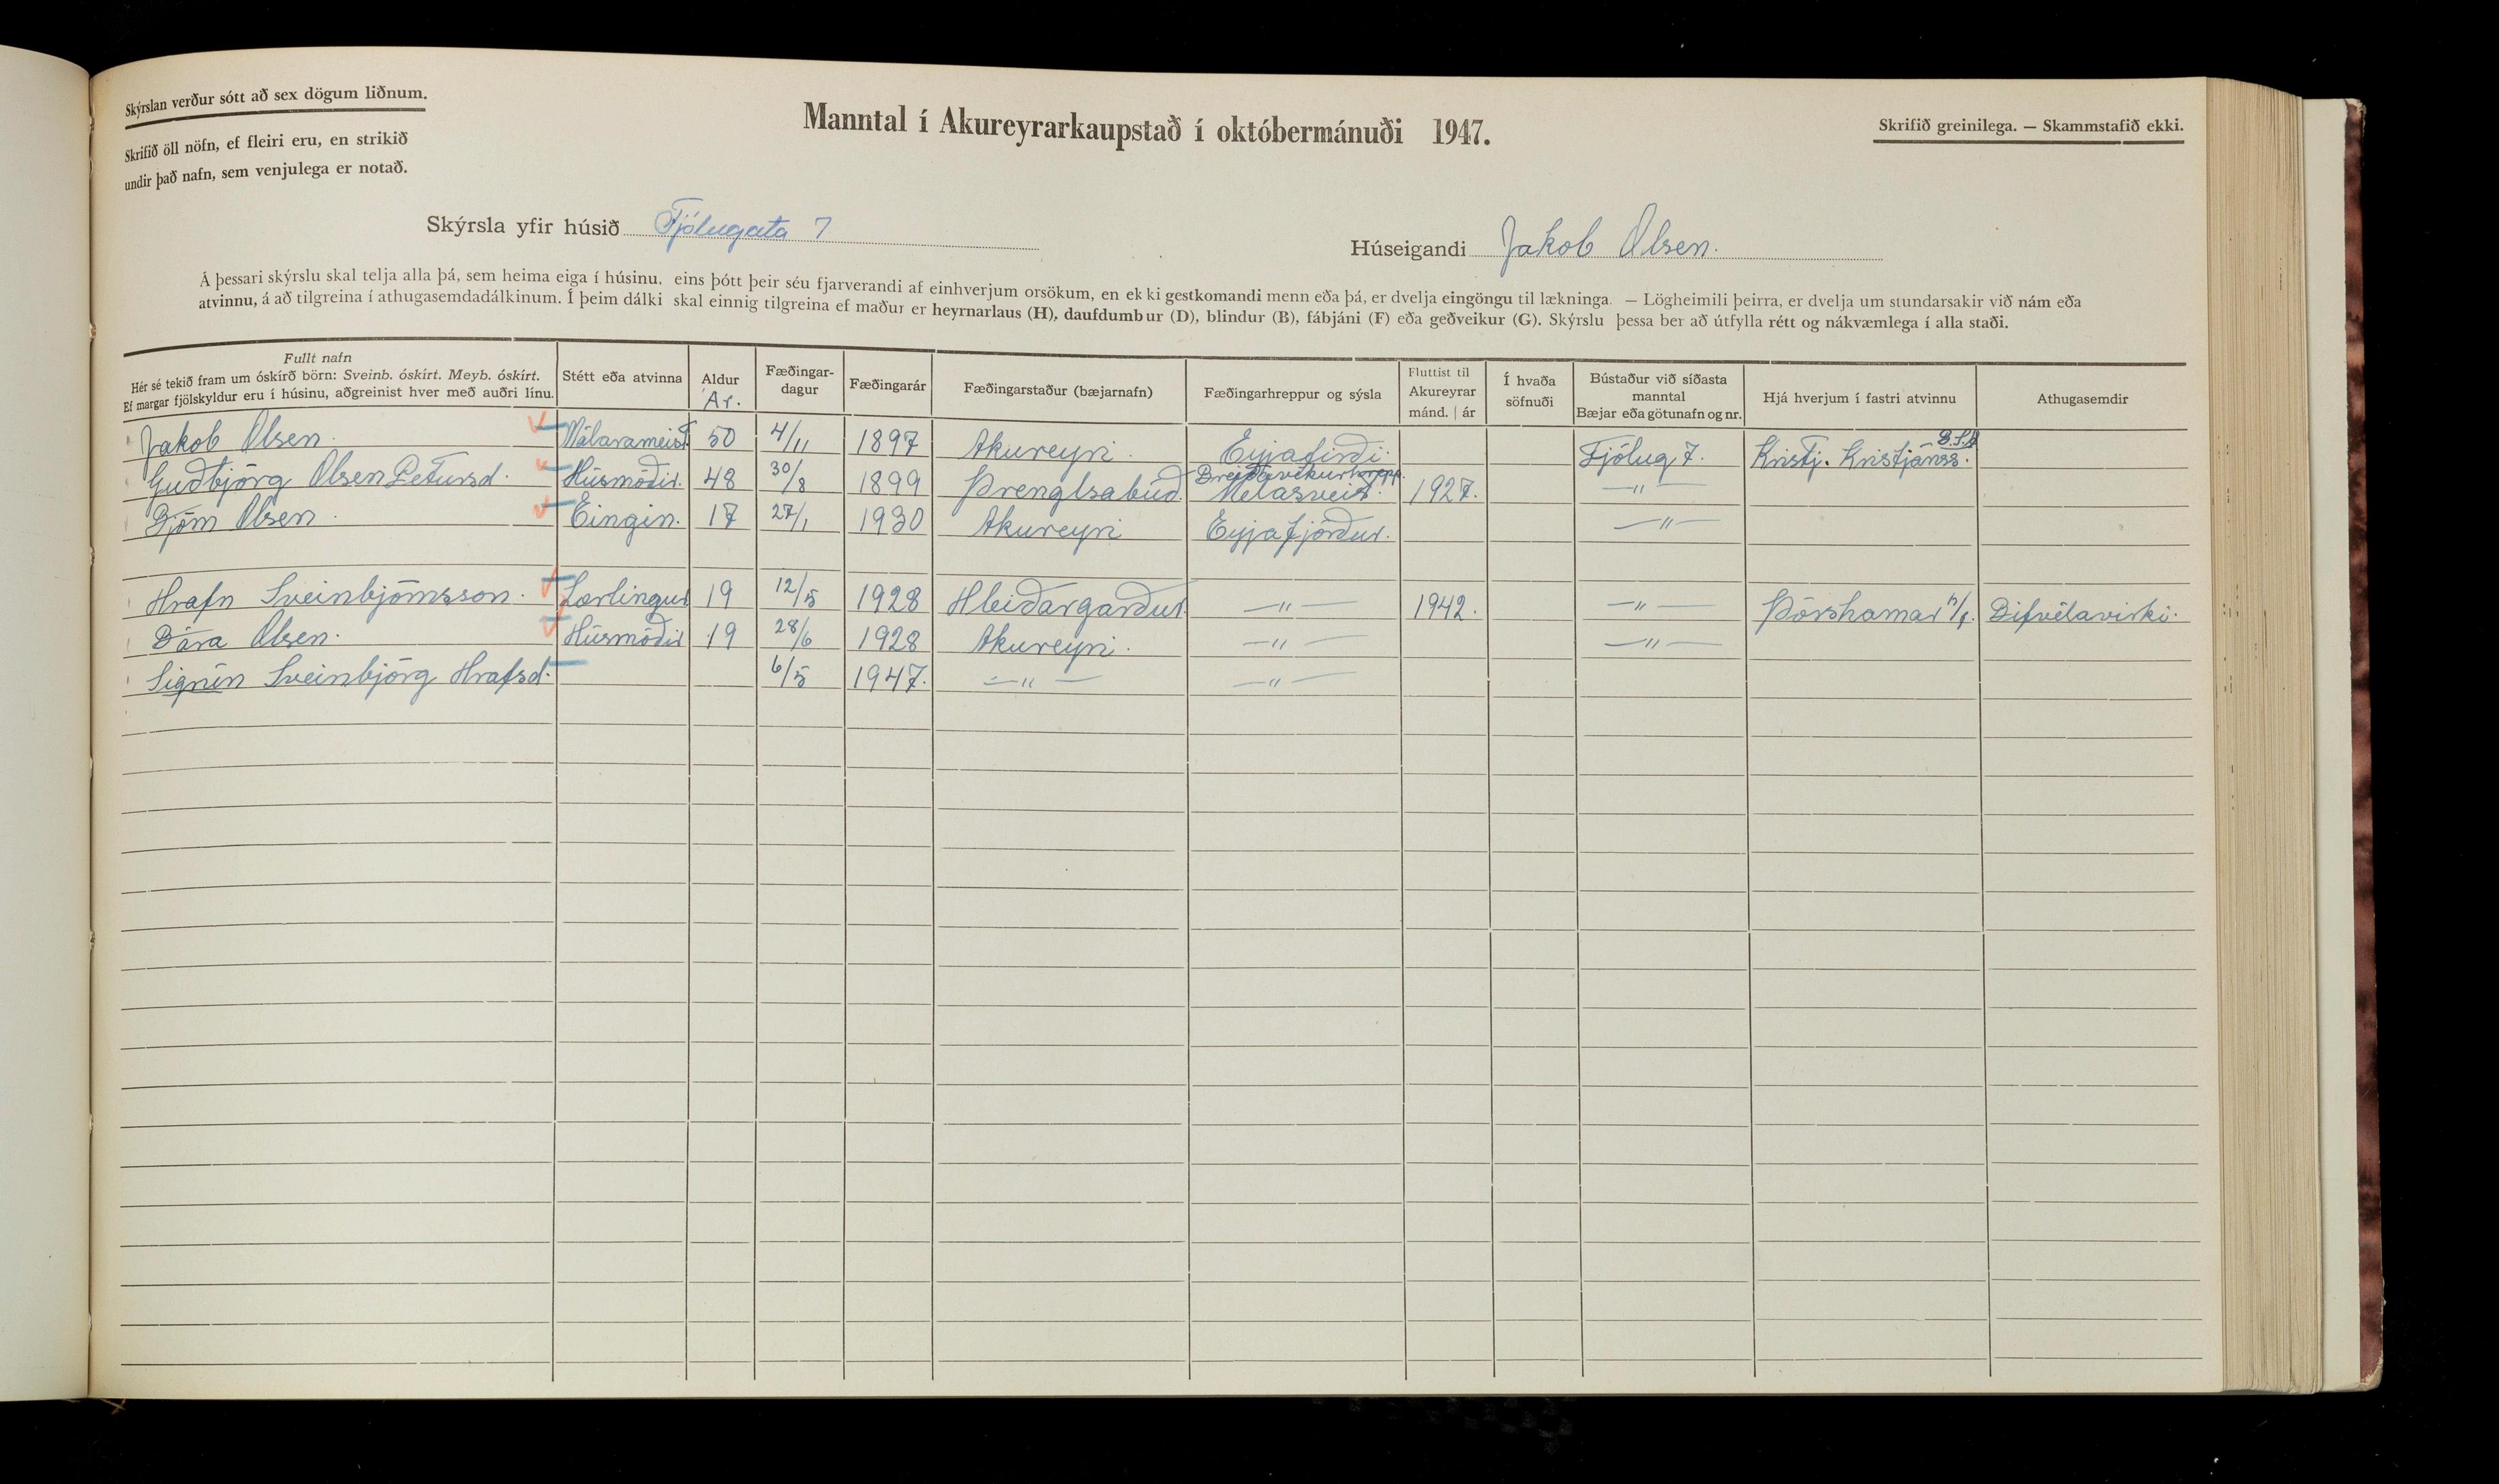 Skýrslan verður sótt að sex dögum liðnum.
Skrifið öll nöfn, ef fleiri eru, en strikið
undir það nafn, sem venjulega er notað.
Manntal í Akureyrarkaupstað í októbermánuði 1947.
Skrifið greinilega. — Skammstafið ekki.
Skýrsla yfir húsið Fjólugata 7
Húseigandi Jakob Olsen.
Á þessari skýrslu skal telja alla þá, sem heima eiga í húsinu, eins þótt þeir séu fjarverandi af einhverjum orsökum, en ekki gestkomandi menn eða þá, er dvelja eingöngu til lækninga. — Lögheimili þeirra, er dvelja um stundarsakir við nám eða
atvinnu, á að tilgreina í athugasemdadálkinum. Í þeim dálki skal einnig tilgreina ef maður er heyrnarlaus (H), daufdumbur (D), blindur (B), fábjáni (F) eða geðveikur (G). Skýrslu þessa ber að útfylla rétt og nákvæmlega í alla staði.
Fullt nafn
Hér sé tekið fram um óskírð börn: Sveinb. óskírt. Meyb. óskírt.
Ef margar fjölskyldur eru í húsinu, aðgreinist hver með auðri línu.
Stétt eða atvinna
Aldur
Ár.
Fæðingar-
dagur
Fæðingarár
Fæðingarstaður (bæjarnafn)
Fæðingarhreppur og sýsla
Fluttist til
Akureyrar
mánd. | ár
Í hvaða
söfnuði
Bústaður við síðasta
manntal
Bæjar eða götunafn og nr.
Hjá hverjum í fastri atvinnu
Athugasemdir
Jakob Olsen. Málarameist. 50 4/11 1897 Akureyri. Eyjafirði. Fjólug 7. Kristj. Kristjánss. B.S.A
Guðbjörg Olsen Petursd. Húsmóðir. 48 30/8 1899 Þrenglsabúð. Breiðavíkurhrepp. Melasveit. 1927. —"—
Björn Olsen. Eingin. 17 27/1 1930 Akureyri Eyjafjörður. —"—
Hrafn Sveinbjörnsson. Lærlingur 19 12/5 1928 Hleiðargarður —"— 1942. —"— Þórshamar h/f. Bifvélavirki.
Bára Olsen. Húsmóðir 19 28/6 1928 Akureyri. —"— —"—
Signín Sveinbjörg Hrafsd. 6/5 1947. —"— —"—